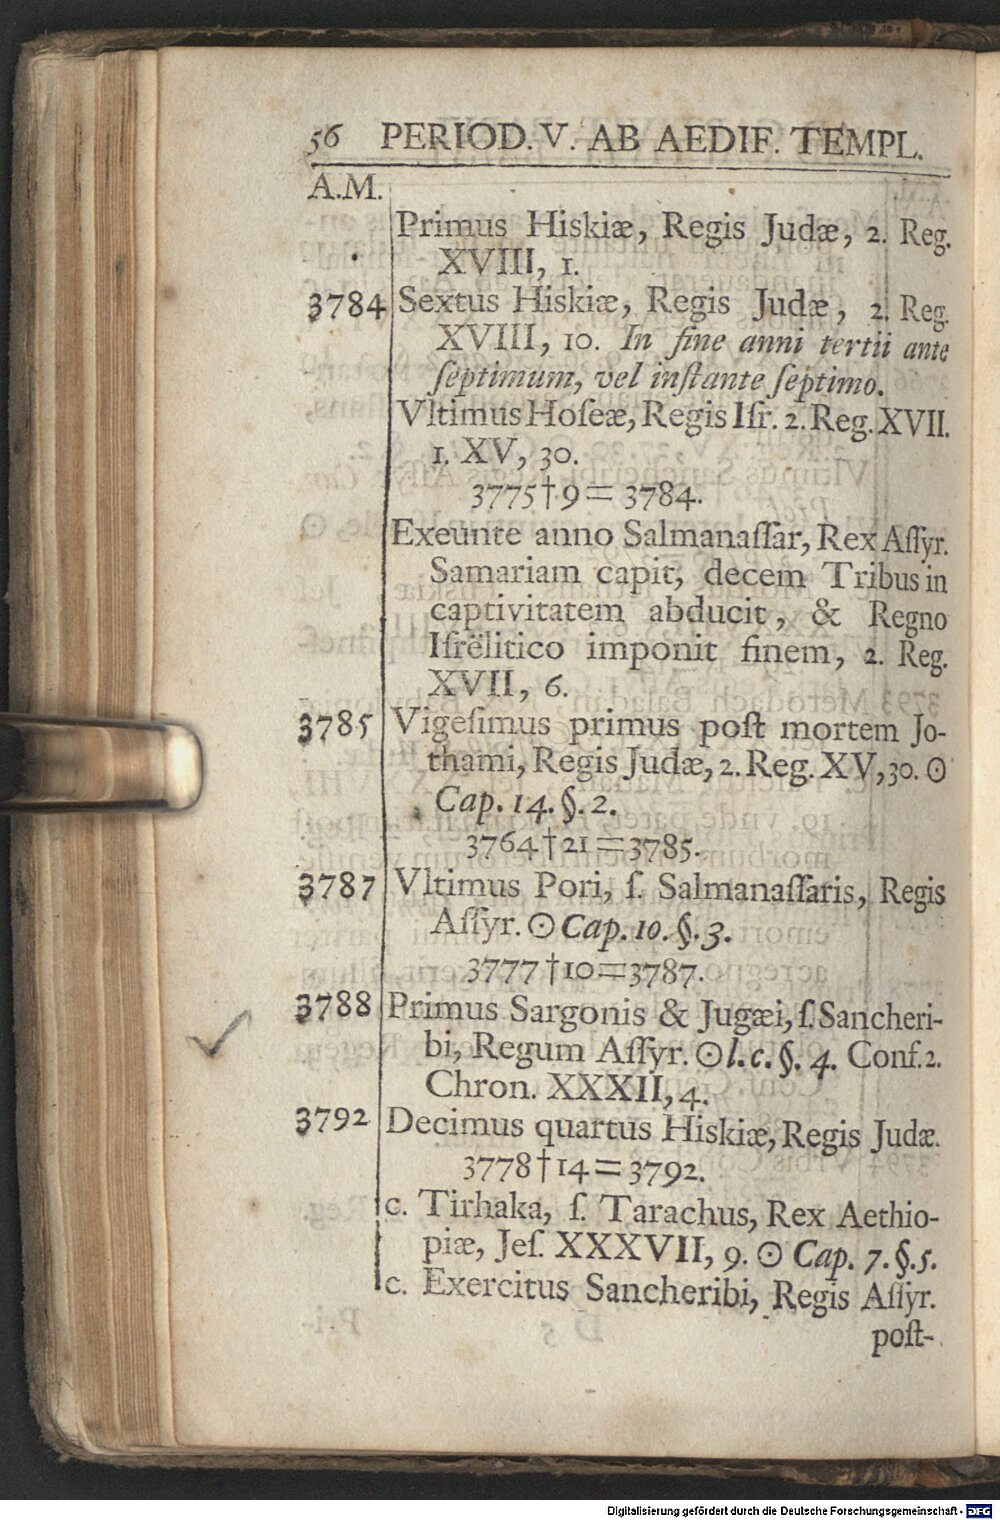 56 PERIOD. V. AB AEDIF. TEMPL.
A.M.
Primus Hiskiæ, Regis Judæ, 2. Reg.
XVIII, 1.
3784 Sextus Hiskiæ, Regis Judæ, 2. Reg.
XVIII, 10. In fine anni tertii ante
ſeptimum, vel inſtante ſeptimo.
Vltimus Hoſeæ, Regis Iſr. 2. Reg. XVII.
1. XV, 30.
3775†9=3784.
Exeunte anno Salmanaſſar, Rex Aſſyr.
Samariam capit, decem Tribus in
captivitatem abducit, & Regno
Iſrëlitico imponit finem, 2. Reg.
XVII, 6.
3785 Vigeſimus primus poſt mortem Jo-
thami, Regis Judæ, 2. Reg. XV, 30. ☉
Cap. 14. §. 2.
3764†21=3785.
3787 Vltimus Pori, ſ. Salmanaſſaris, Regis
Aſſyr. ☉ Cap. 10. §. 3.
3777†10=3787.
3788 Primus Sargonis & Jugæi, ſ. Sancheri-
bi, Regum Aſſyr. ☉ l. c. §. 4. Conf. 2.
Chron. XXXII, 4.
3792 Decimus quartus Hiskiæ, Regis Judæ.
3778†14=3792.
c. Tirhaka, ſ. Tarachus, Rex Aethio-
piæ, Jeſ. XXXVII, 9. ☉ Cap. 7. §. 5.
c. Exercitus Sancheribi, Regis Aſſyr.
poſt-
Digitalisierung gefördert durch die Deutsche Forschungsgemeinschaft - DFG